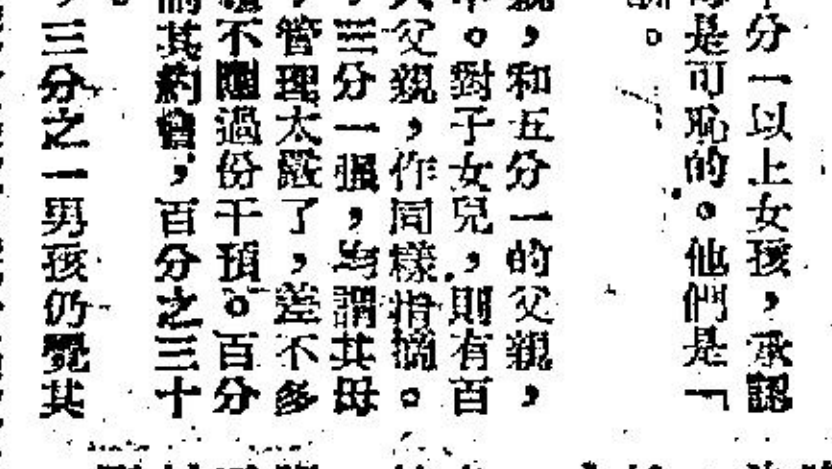 分一以上女孩，承認
是可恥的。他們是「
。
親，和五分一的父親，
。對子女兒，則有百
父親，作同樣指摘。
，三分一強，均謂其母
，管理太嚴了，差不多
不應過份干預。百分
其約會，百分之三十
，三分之一男孩仍覺其